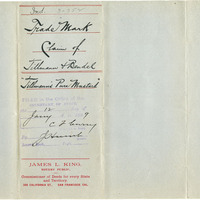 Trade Mark
Claim of
Tillmann & Bendel
"Tillmann's Pure Mustard"
Filed in the Office of the
SECRETARY OF STATE
Jany 12 9
C F Curry
JAMES L. KING,
NOTARY PUBLIC
Commissioner of Deeds for every State
and Territory
SAN FRANCISCO, CAL.